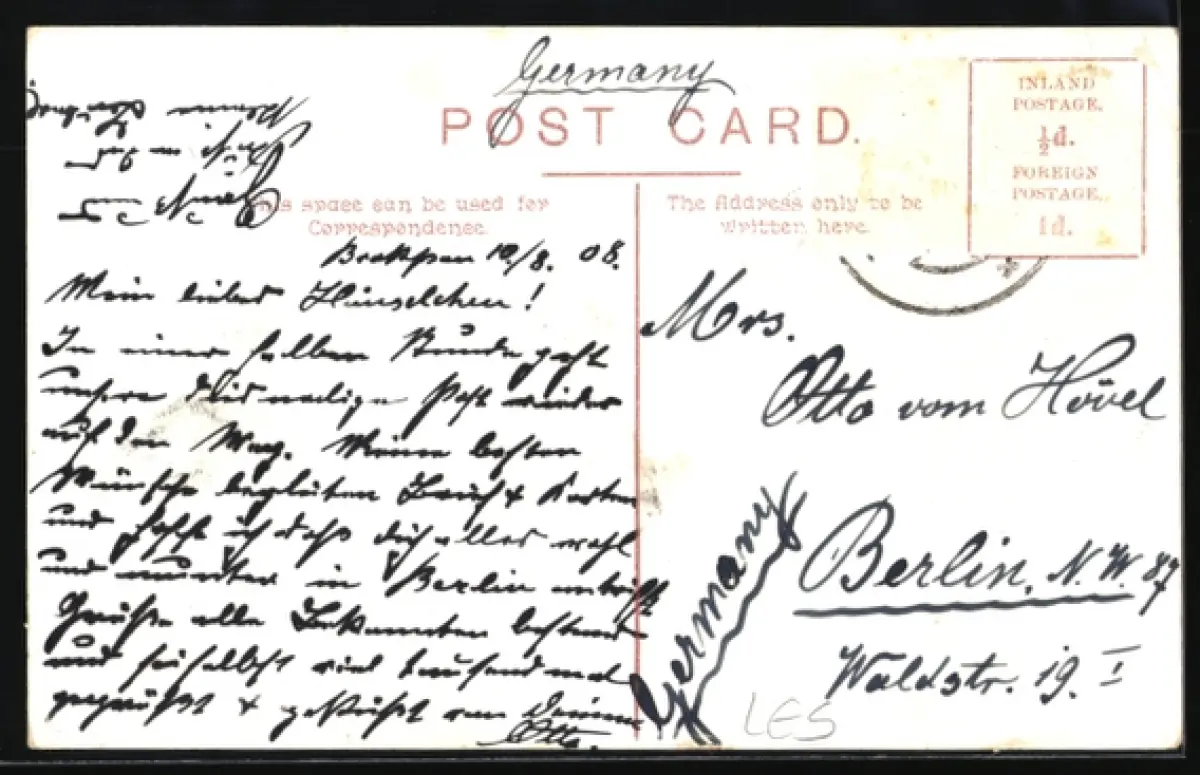 Germany
POST CARD.
INLAND
POSTAGE,
½d.
FOREIGN
POSTAGE,
1d.
This space can be used for
Correspondence.
The Address only to be
written here.
10/8. 08.
Mein lieber Hänselchen!
In einer halben Stunde geht
unsere diesmalige Post wieder
auf den Weg. Meine besten
Wünsche begleiten Brief & Karten
und hoffe ich daß dich alles wohl
und munter in Berlin antrifft
Grüße alle Bekannten bestens
und sei selbst viel tausend mal
gegrüßt & geküßt von Deinem
Otto.
Mrs.
Otto vom Hövel
Berlin, N.W. 87
Waldstr. 19. I
Germany
LES